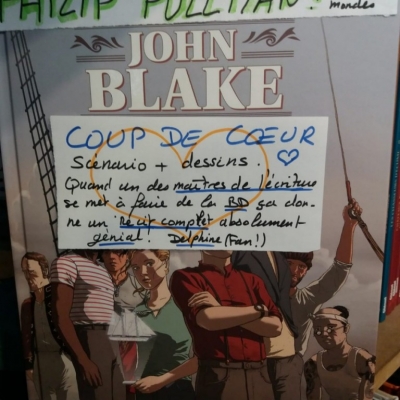 PHILIP PULLMAN!
mondes
JOHN
BLAKE
COUP DE CŒUR
Scénario + dessins.
Quand un des maîtres de l'écriture
se met à faire de la BD ça don-
ne un Récit complet absolument
génial! Delphine (Fan!)